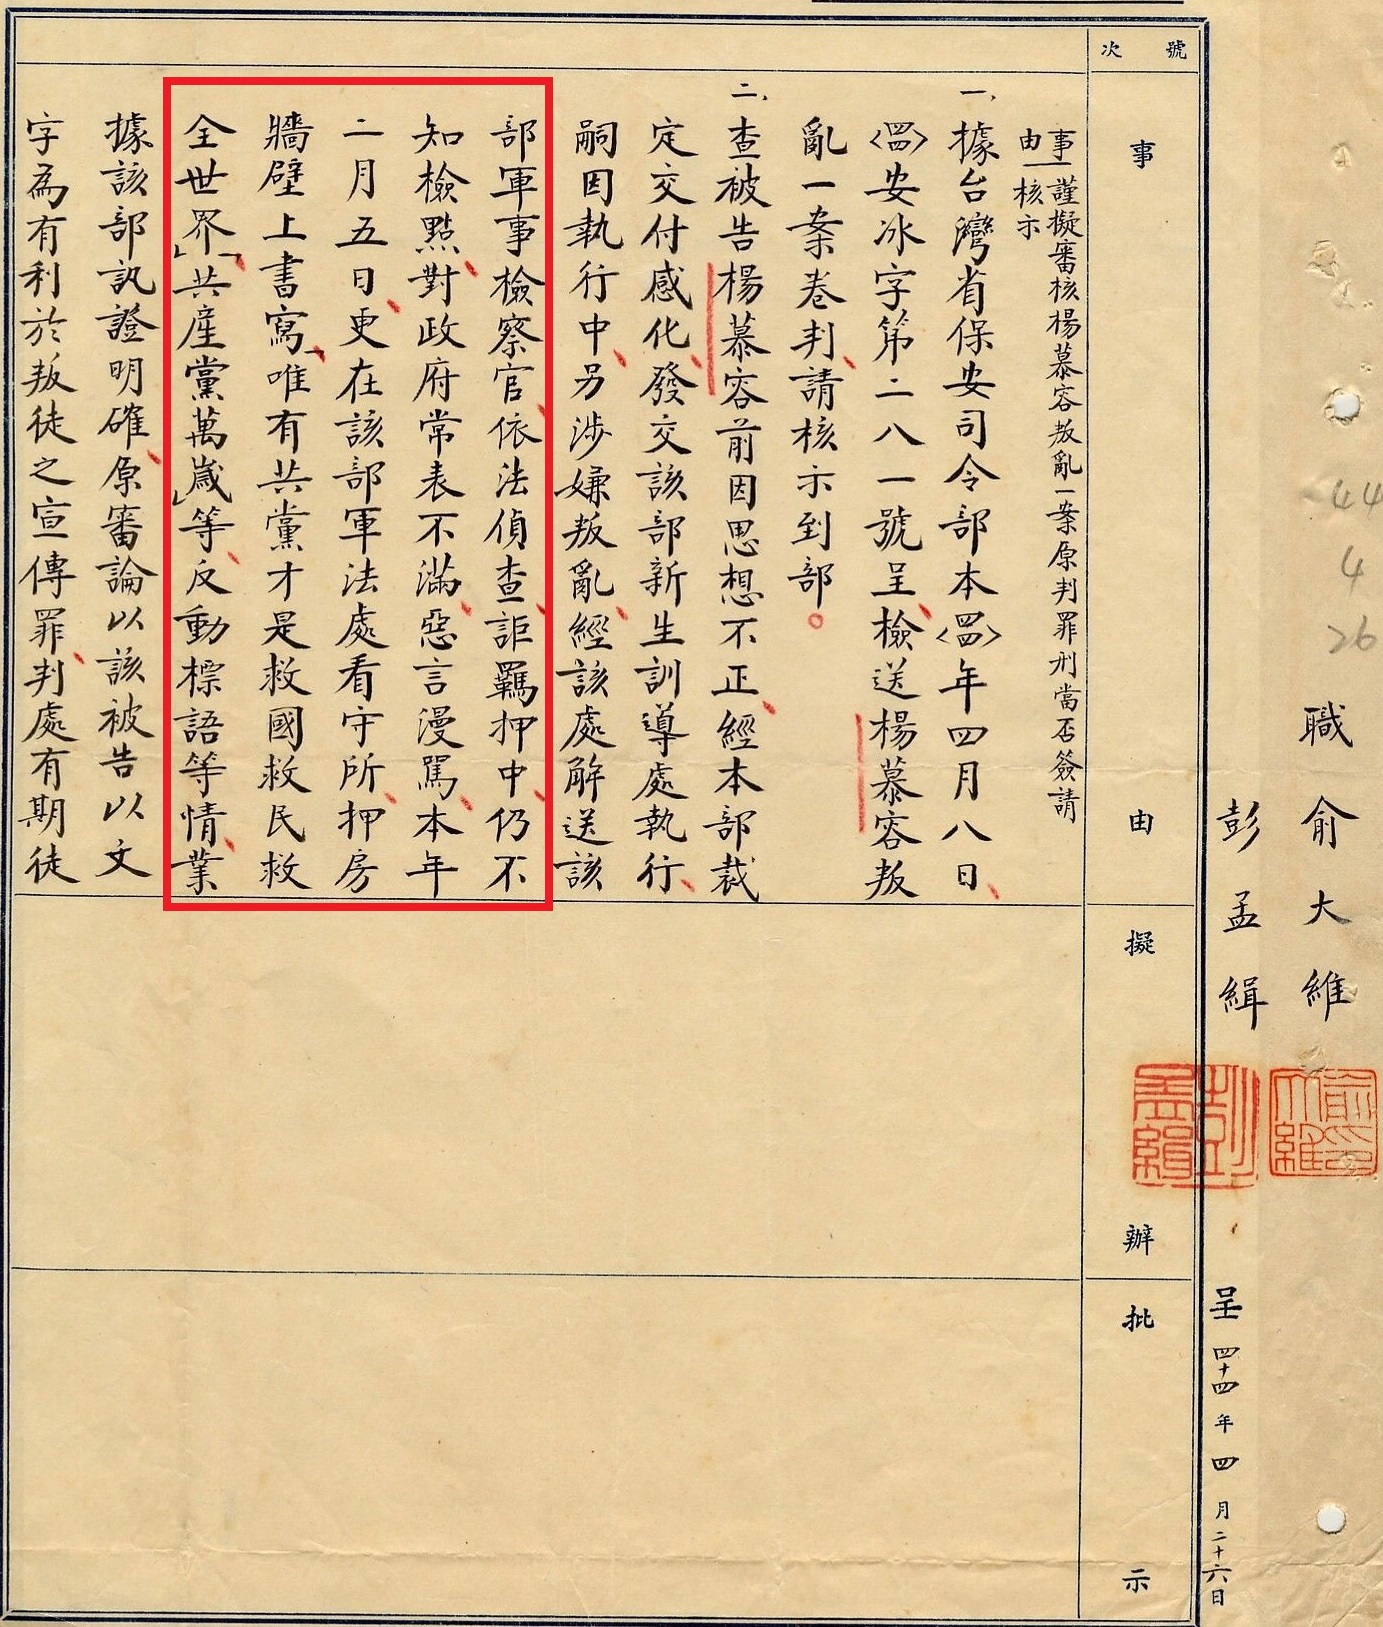 職俞大維
彭孟緝
呈四十四年四月二十六日
44
4
26
俞大維印
彭孟緝印
號次
事由
擬辦
批示
事由
謹擬審核楊慕容叛亂一案原判罪刑當否簽請
核示
一、據台灣省保安司令部本〈四四〉年四月八日、
〈四四〉安冰字第二八一號呈、檢送楊慕容叛
亂一案卷判、請核示到部。
二、查被告楊慕容前因思想不正、經本部裁
定交付感化、發交該部新生訓導處執行、
嗣因執行中、另涉嫌叛亂、經該處解送該
部軍事檢察官、依法偵查、詎羈押中、仍不
知檢點、對政府常表不滿、惡言漫罵、本年
二月五日、更在該部軍法處看守所、押房
牆壁上書寫、「唯有共黨才是救國救民救
全世界」、「共產黨萬歲」等、反動標語等情、業
據該部訊證明確、原審論以該被告以文
字為有利於叛徒之宣傳罪、判處有期徒